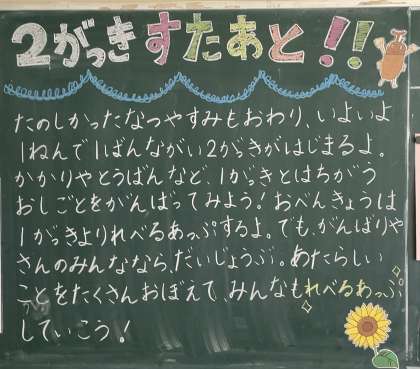 2がっき すたあと!!
たのしかったなつやすみもおわり、いよいよ
1ねんで1ばんながい2がっきがはじまるよ。
かかりやとうばんなど、1がっきとはちがう
おしごとをがんばってみよう!おべんきょうは
1がっきよりれべるあっぷするよ。でも、がんばりや
さんのみんななら、だいじょうぶ。あたらしい
ことをたくさんおぼえて、みんなもれべるあっぷ
していこう!